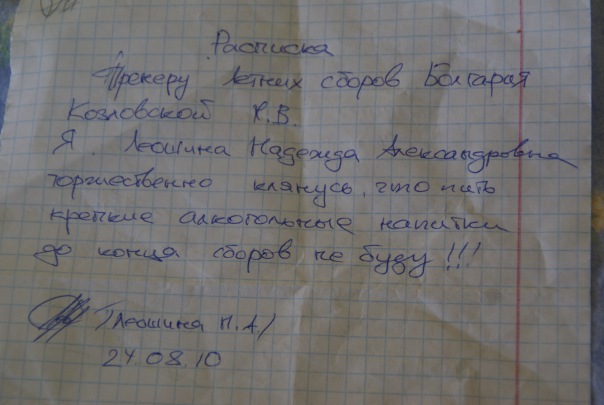 Расписка
Тренеру летних сборов Болгария
Козловской К.В.
Я Леошина Надежда Александровна
торжественно клянусь, что пить
крепкие алкогольные напитки
до конца сборов не буду!!!
Леошина Н.А/
24.08.10